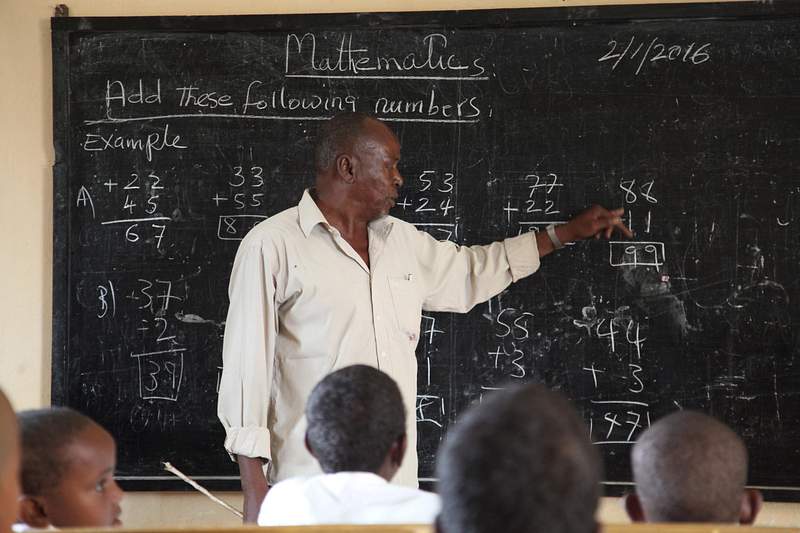 Mathematics. 2/1/2016
Add These following numbers.
Example
A) +22 33 53 77 88
45 +55 +24 +22 11
67 8 7 99
B) +37 7 55 44
+2 1 +3 +3
39 47